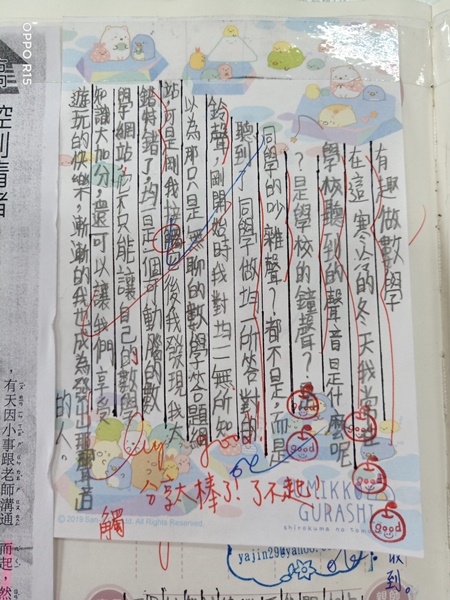 有趣做數學
在這寒冷的冬天我常在
學校聽到的聲音是什麼呢
?是學校的鐘聲?是
同學的吵雜聲?都不是,而是
聽到了同學做均一所答對的
鈴聲,剛開始時我對均一無所知
以為那只是無聊的數學答題網
站,可是剛我接觸它後我發現我大
錯特錯了,均一是個可動腦的數
學網站,不只能讓自己的數學
知識大加分,還可以讓我們享受
遊玩的快樂,漸漸的我也成為發出那聲音
的人。
good
good
good
good
Very good
分享太棒了!了不起!
觸
GURASHI
有天因小事跟老師溝通
而起,然
控制情緒
收到。
OPPO R15